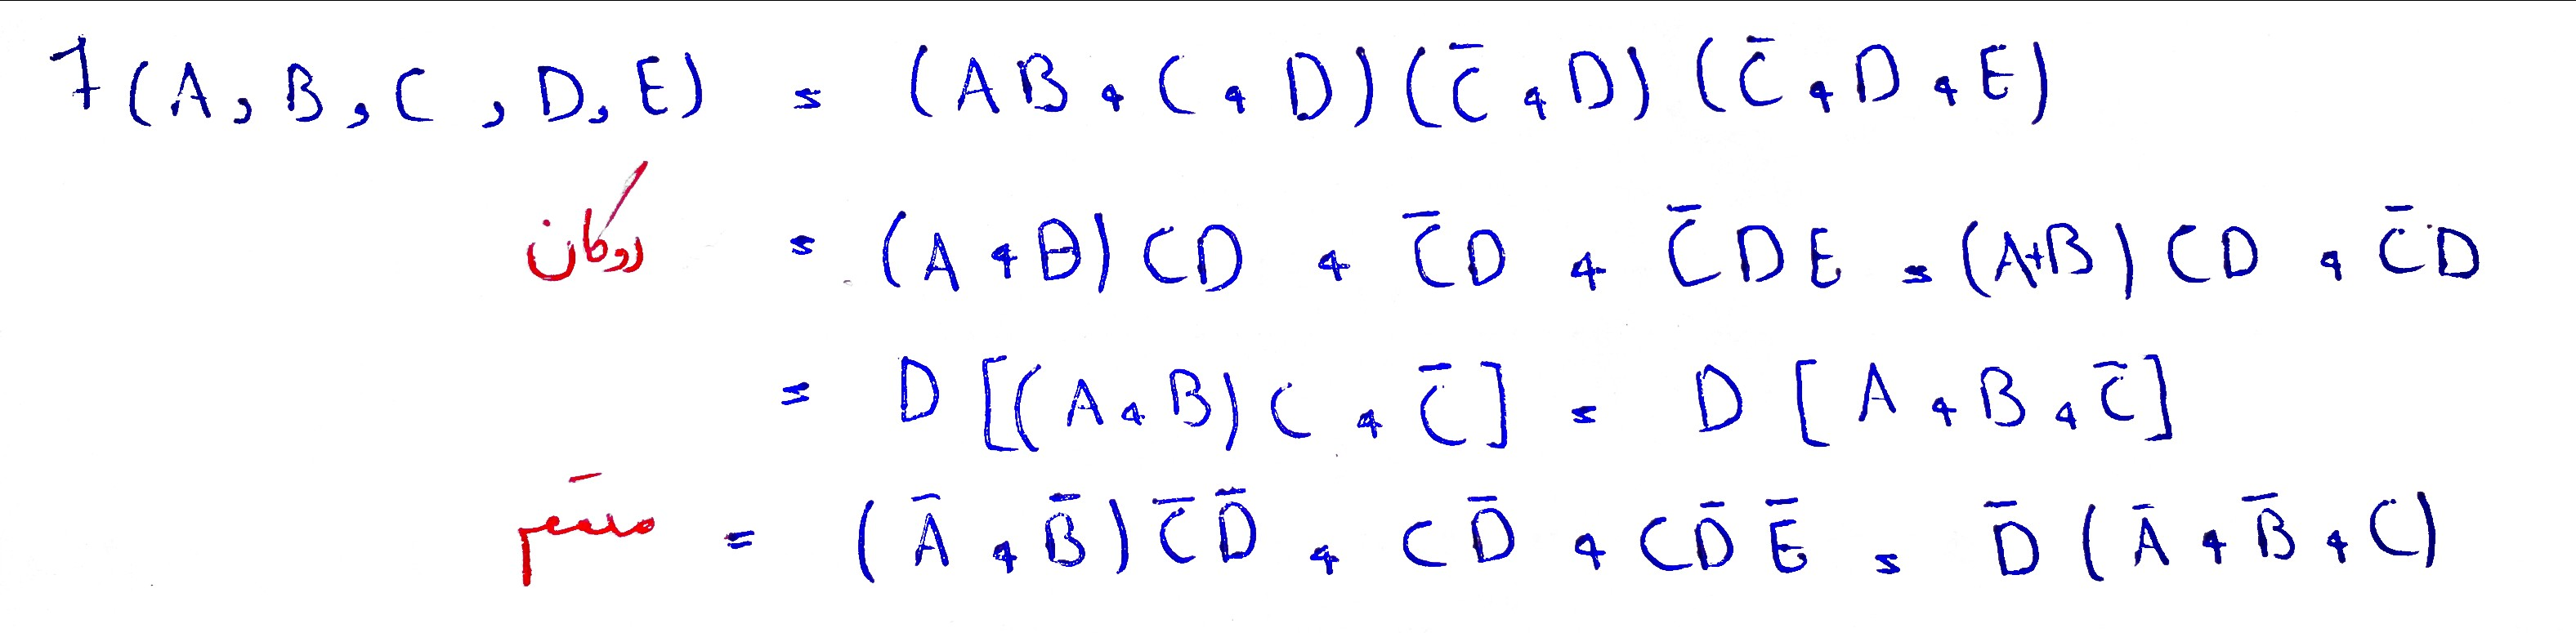 f(A, B, C, D, E) = (AB + C + D)(C̅ + D)(C̅ + D + E)
دوگان = (A + B) CD + C̅D + C̅DE = (A+B) CD + C̅D
= D [(A + B) C + C̅] = D [A + B + C̅]
متمم = (A̅ + B̅) C̅D̅ + CD̅ + CD̅E̅ = D̅ (A̅ + B̅ + C)